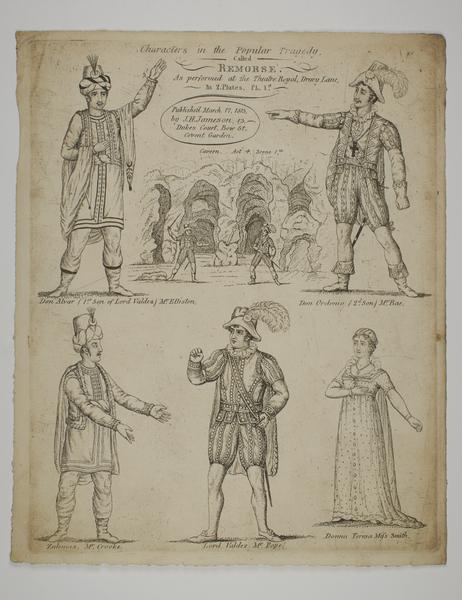 Characters in the Popular Tragedy,
Called
REMORSE.
As performed at the Theatre Royal, Drury Lane,
In 2. Plates. Pl. 1st
Published March 17, 1813,
by J.H. Jameson, 13,
Dukes Court, Bow St.
Covent Garden.
Cavern. Act 4. Scene 1st
Don Alvar (1st Son of Lord Valdez) Mr. Elliston.
Don Ordonio (2d Son) Mr. Rae.
Zulimez. Mr. Crooke.
Lord Valdez Mr. Pope.
Donna Teresa Miss Smith.